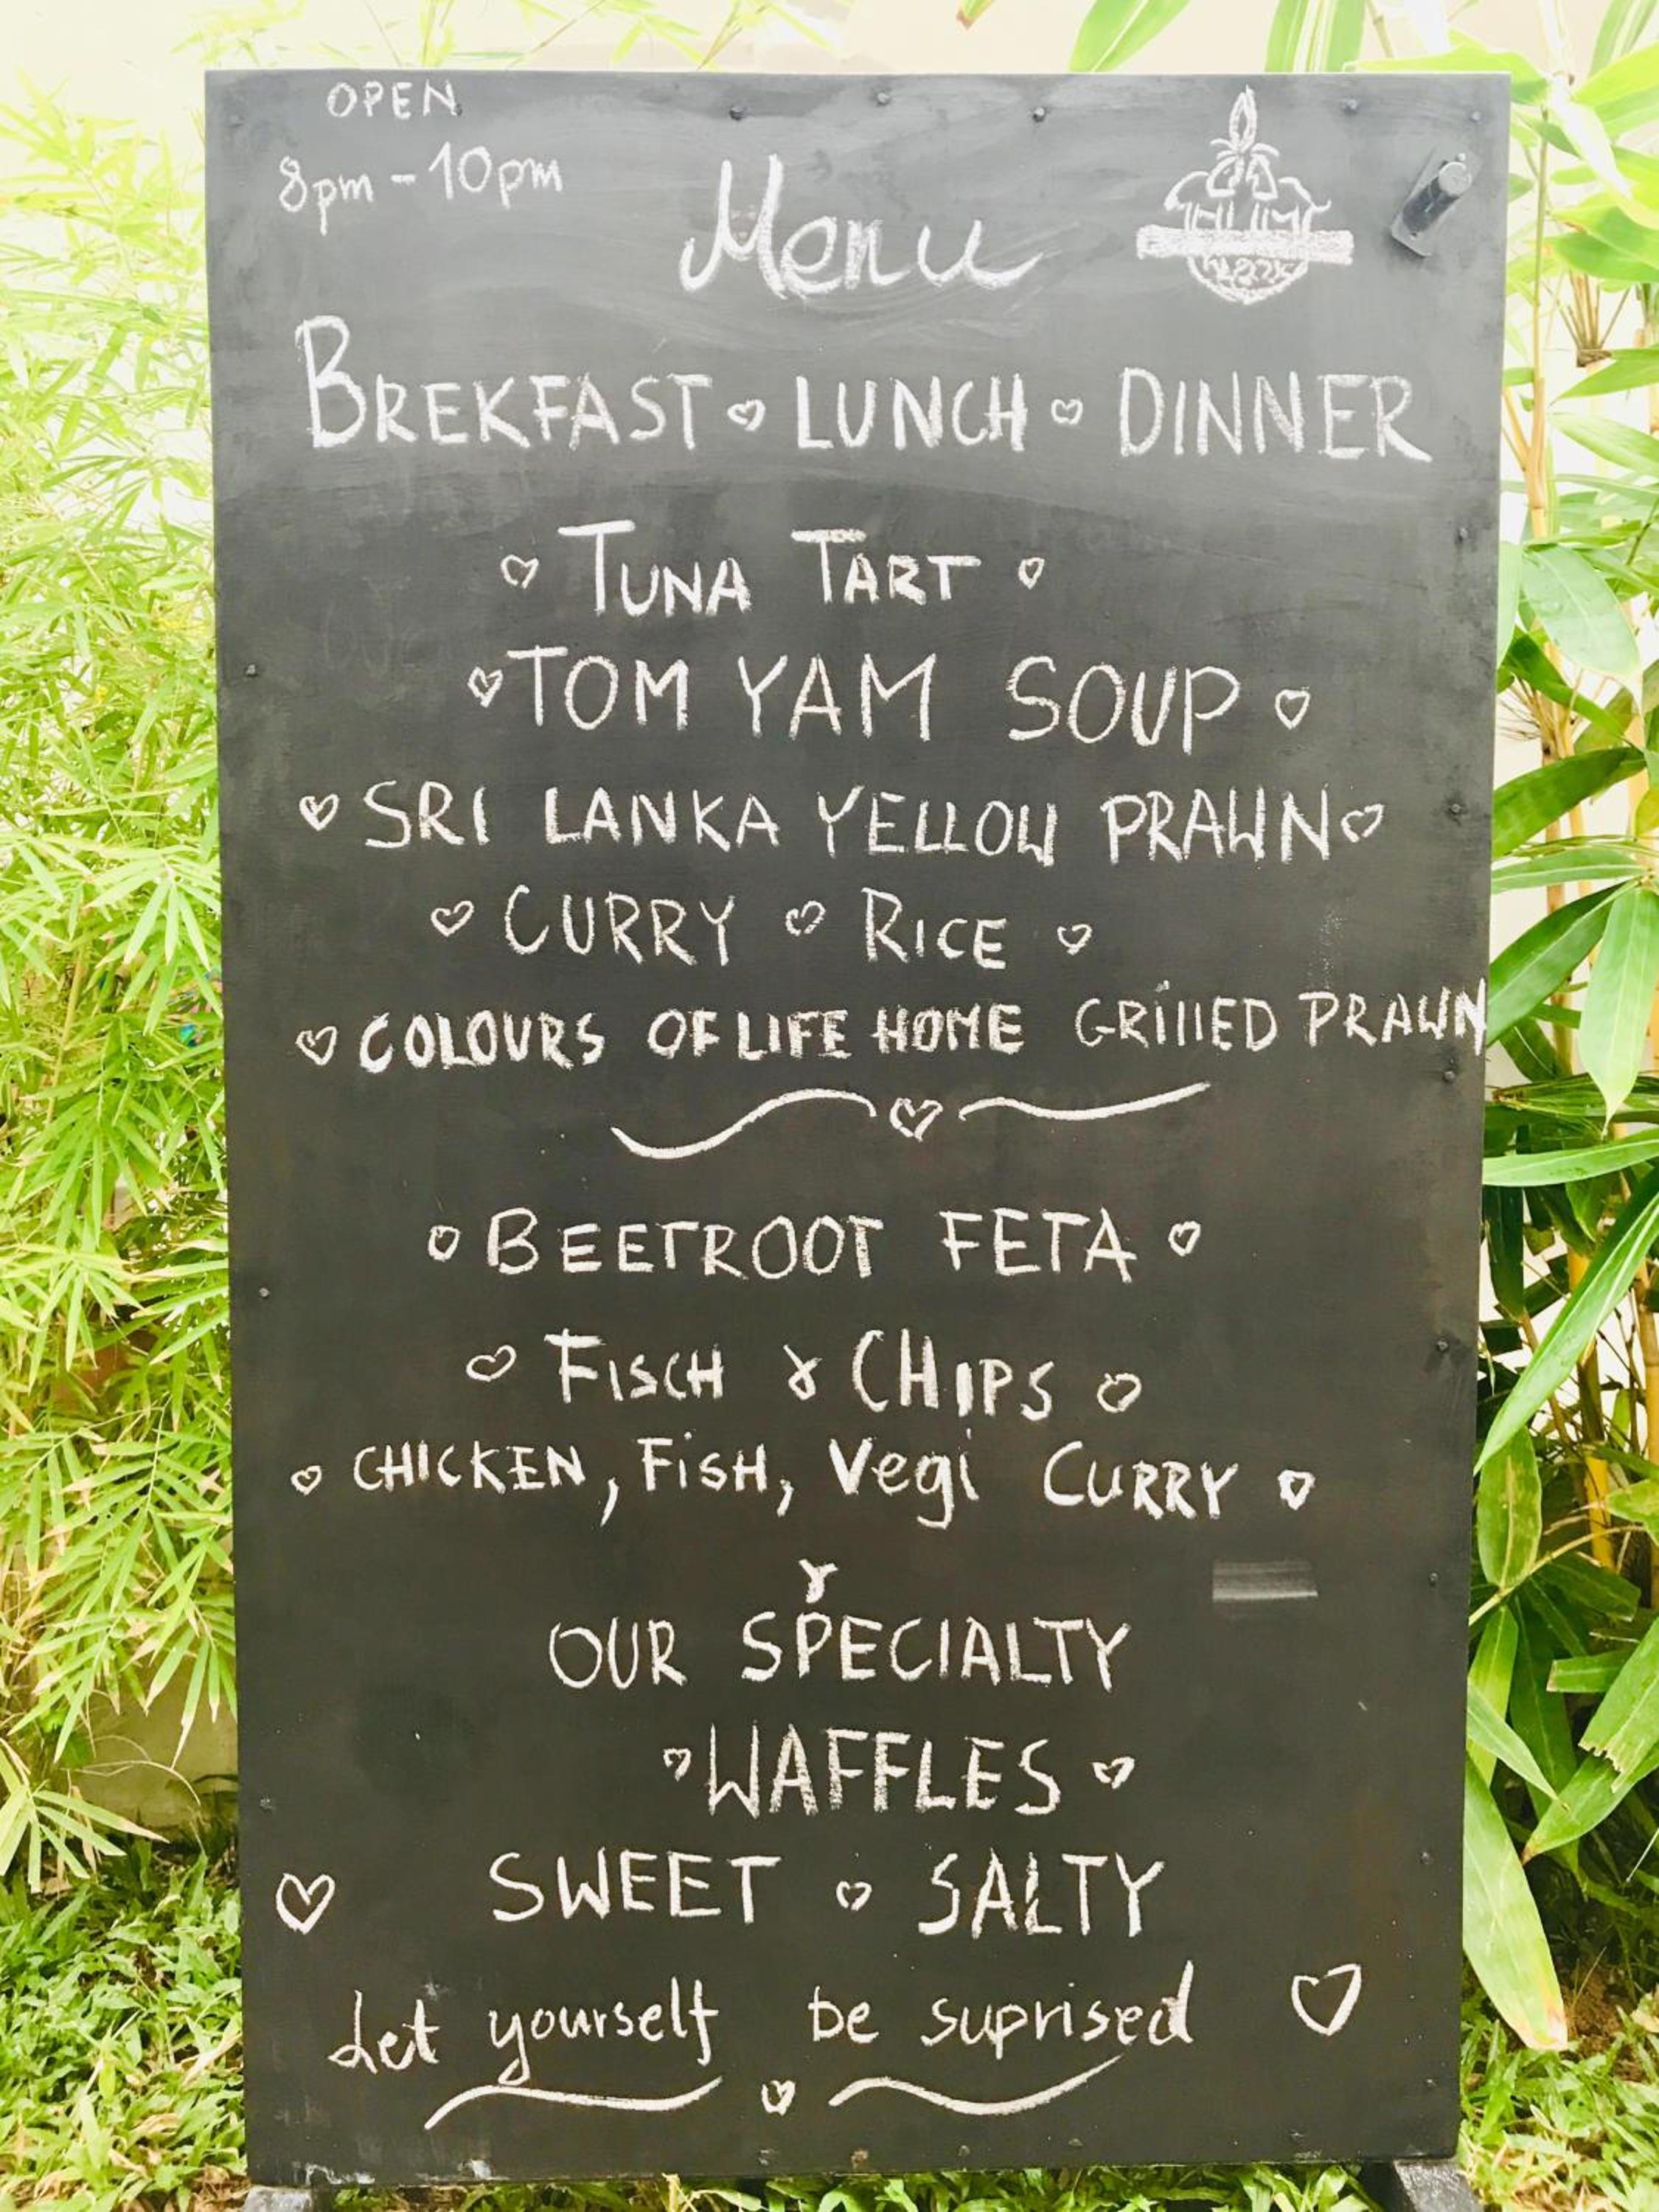 OPEN
8pm - 10pm
Menu
BREKFAST LUNCH DINNER
TUNA TART
TOM YAM SOUP
SRI LANKA YELLOW PRAWN
CURRY RICE
COLOURS OF LIFE HOME GRillED PRAWN
BEETROOT FETA
FISCH & CHIPS
CHICKEN, FiSH, Vegi CURRY
&
OUR SPECIALTY
WAFFLES
SWEET SALTY
Let yourself be suprised